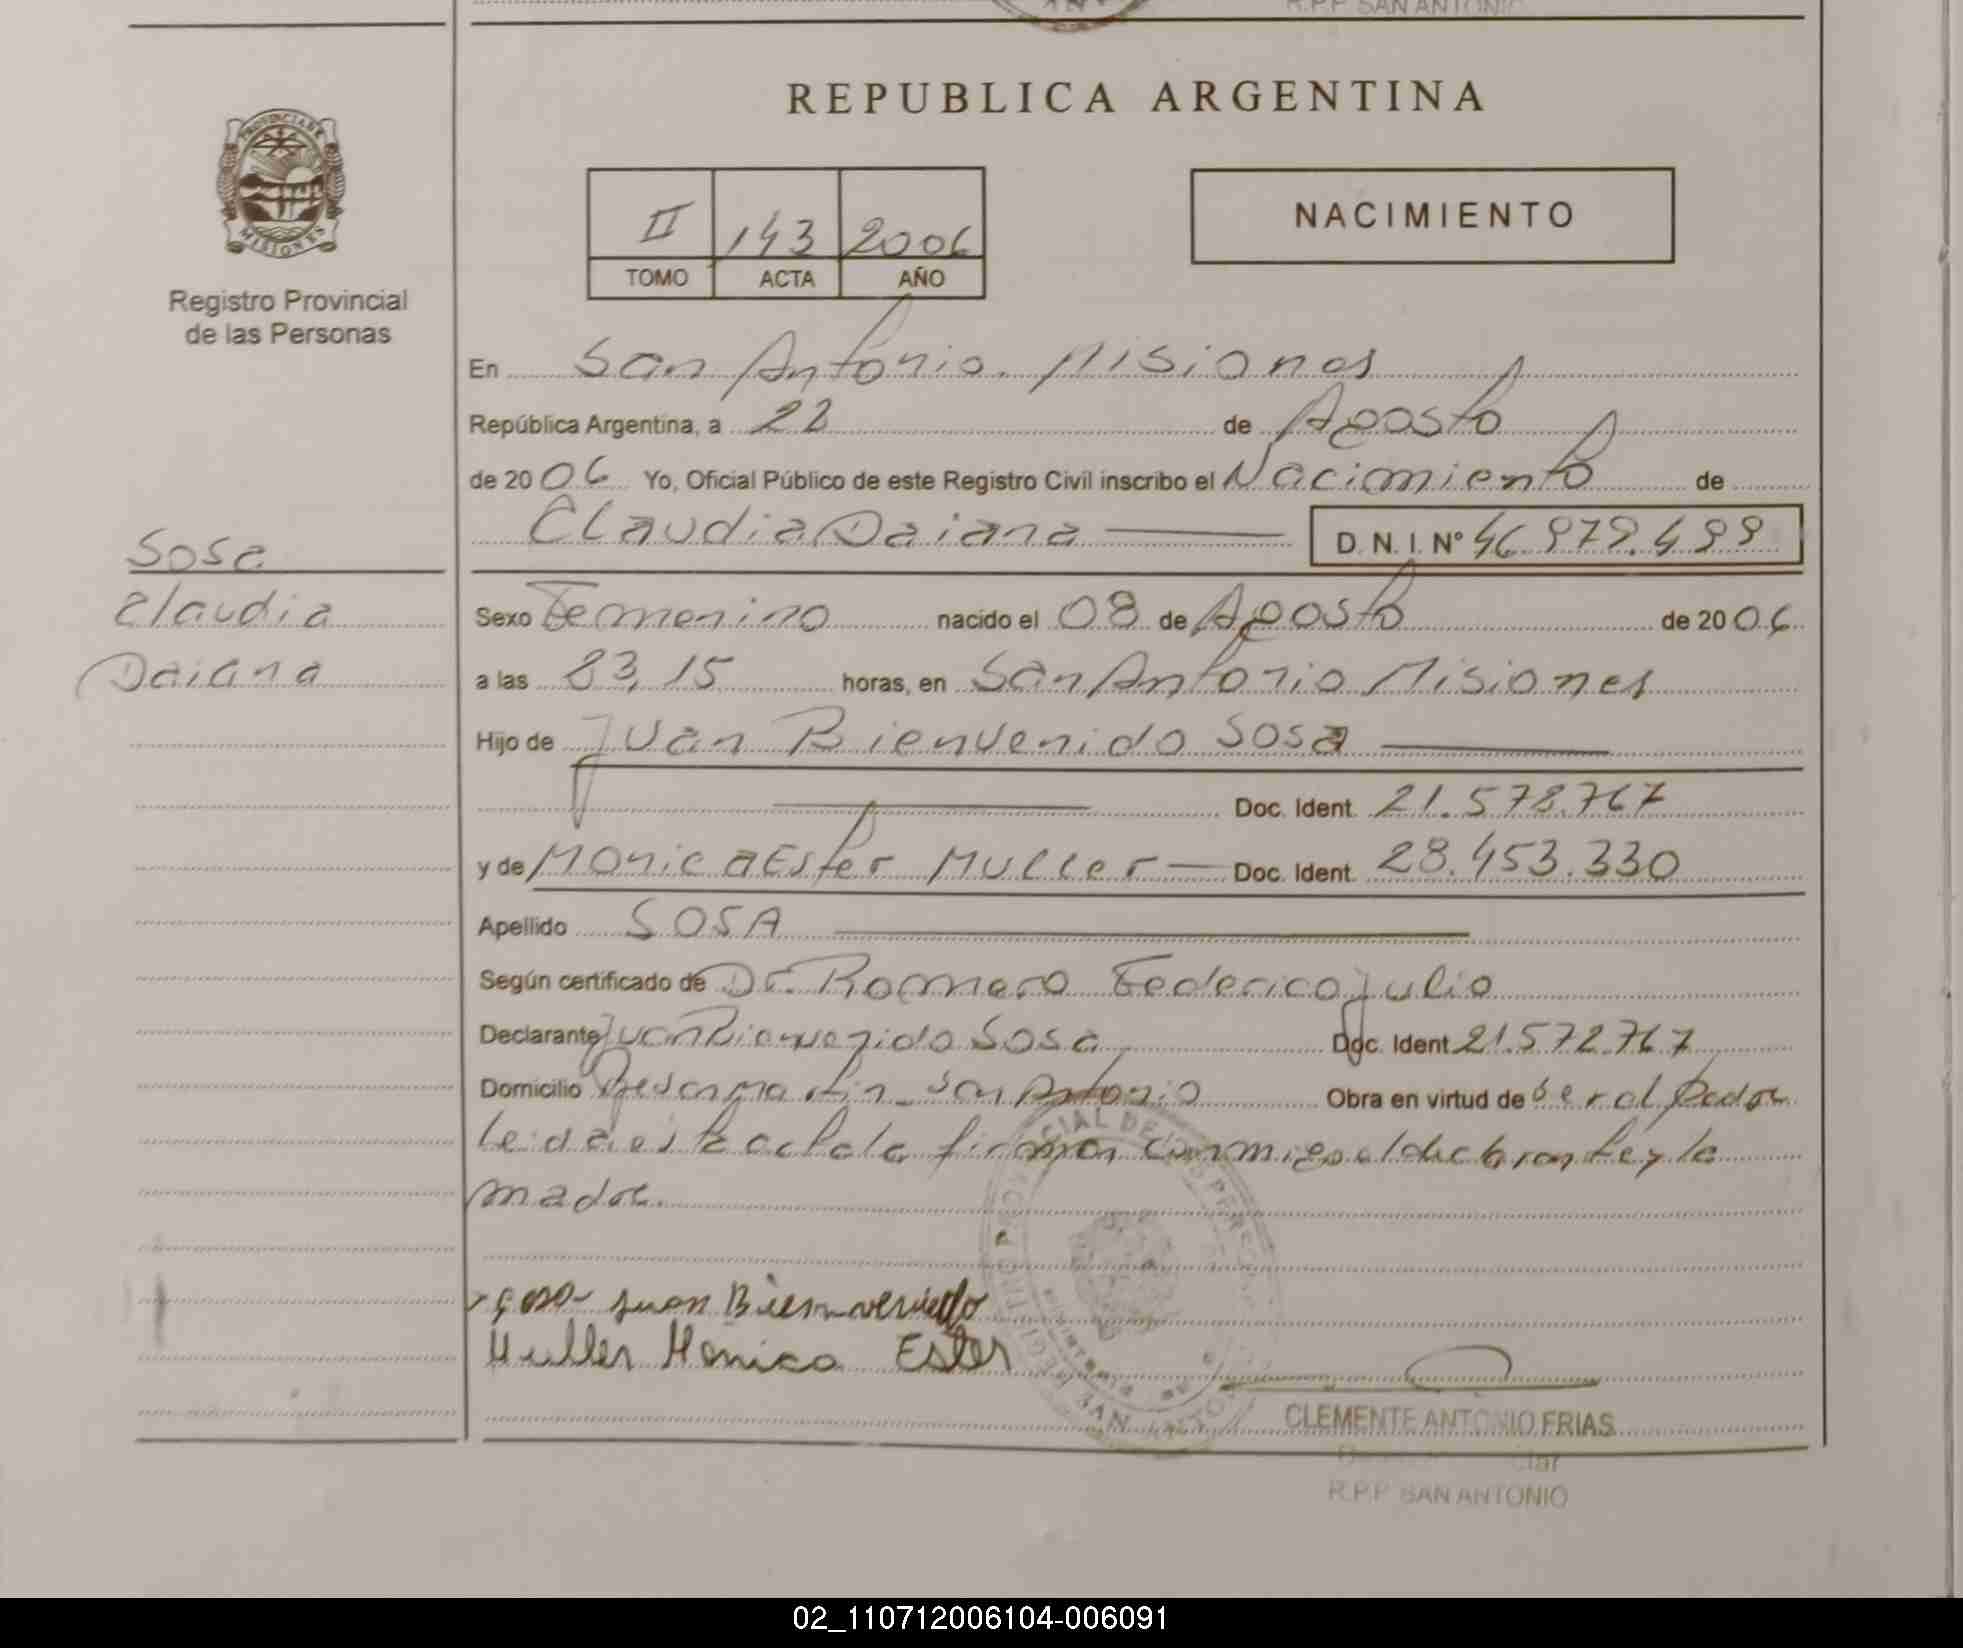 R.P.P. SAN ANTONIO
REPUBLICA ARGENTINA
PROVINCIA DE
MISIONES
II 143 2006
TOMO ACTA AÑO
NACIMIENTO
Registro Provincial
de las Personas
En San Antonio. Misiones
República Argentina, a 22 de Agosto
de 2006 Yo, Oficial Público de este Registro Civil inscribo el Nacimiento de
Claudia Daiana D. N. I. Nº
Sosa
Claudia
Daiana
Sexo Femenino nacido el 08 de Agosto de 2006
a las 23,15 horas, en San Antonio Misiones
Hijo de Juan Bienvenido Sosa
Doc. Ident.
y de Monica Ester Muller Doc. Ident. 28.453.330
Apellido SOSA
Según certificado de Dr. Romero Federico Julio
Declarante Juan Bienvenido Sosa Doc. Ident.
Domicilio San Antonio Obra en virtud de ser el Padre
Leida esta acta la firman conmigo el declarante y la
madre.
Sosa Juan Bienvenido
Muller Monica Ester
CLEMENTE ANTONIO FRIAS
R.P.P. SAN ANTONIO
02_110712006104-006091